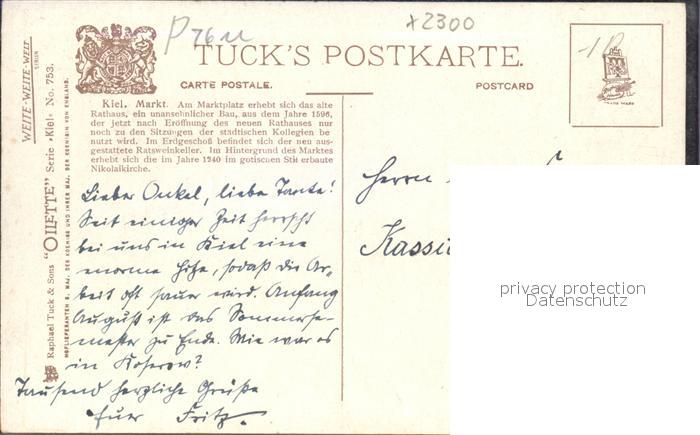 P 76 u
x2300
TUCK'S POSTKARTE.
CARTE POSTALE.
POSTCARD
TRADE MARK
WEITE-WEITE-WELT
SERIEN
Raphael Tuck & Sons "OILETTE" Serie »Kiel« No. 753.
HOFLIEFERANTEN S. MAJ. DER KOENIGS UND IHRER MAJ. DER KOENIGIN VON ENGLAND.
Kiel. Markt. Am Marktplatz erhebt sich das alte
Rathaus, ein unansehnlicher Bau, aus dem Jahre 1596,
der jetzt nach Eröffnung des neuen Rathauses nur
noch zu den Sitzungen der städtischen Kollegien be
nutzt wird. Im Erdgeschoß befindet sich der neu aus-
gestattete Ratsweinkeller. Im Hintergrund des Marktes
erhebt sich die im Jahre 1240 im gotischen Stil erbaute
Nikolaikirche.
Lieber Onkel, liebe Tante!
Seit einiger Zeit herrscht
bei uns in Kiel eine
enorme Hitze, sodaß die Ar-
beit oft sauer wird. Anfang
August ist das Sommerse-
mester zu Ende. Wie war es
in Koserow?
Tausend herzliche Grüße
Euer Fritz.
Herrn
privacy protection
Datenschutz